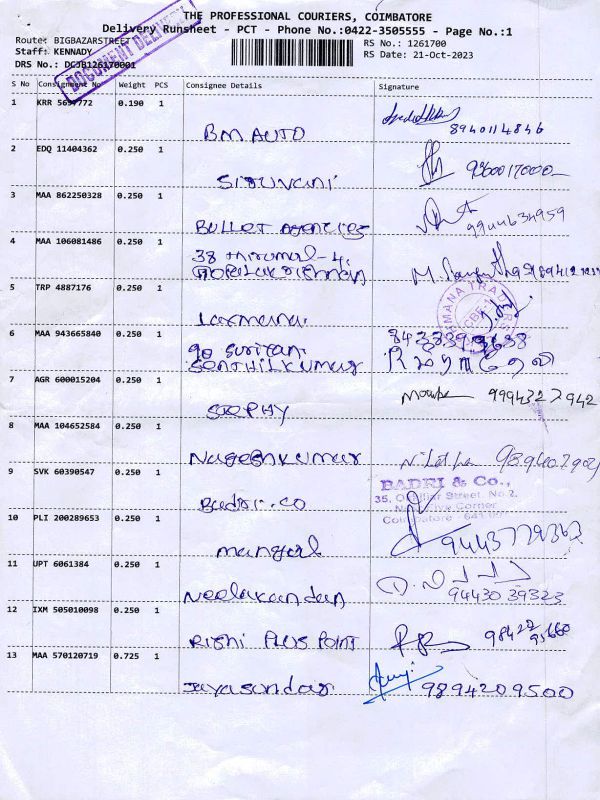 THE PROFESSIONAL COURIERS, COIMBATORE
Delivery Runsheet - PCT - Phone No.:0422-3505555 - Page No.:1
Route: BIGBAZARSTREET
RS No.: 1261700
Staff: KENNADY
RS Date: 21-Oct-2023
DRS No.: DCJB126170001
DOCUMENT DELIVERY
S No Consignment No Weight PCS Consignee Details Signature
1 KRR 5637772 0.190 1
BM AUTO 8940114846
2 EDQ 11404362 0.250 1
Siruvani 9360017000
3 MAA 862250328 0.250 1
Bullet Agencies 9944634959
4 MAA 106081486 0.250 1
38 Thirumal-4.
5 TRP 4887176 0.250 1
Laxmana.
6 MAA 943665840 0.250 1
90
Senthilkumar
7 AGR 600015204 0.250 1
SOPHY 9994327942
8 MAA 104652584 0.250 1
Nageshkumar
9 SVK 60390547 0.250 1
BADRI & Co.,
Badri.co
10 PLI 200289653 0.250 1
mangal
11 UPT 6061384 0.250 1
Neelakandan 94430 39323
12 IXM 505010098 0.250 1
Rishi Plus Point
13 MAA 570120719 0.725 1
Jayasundar 9894209500